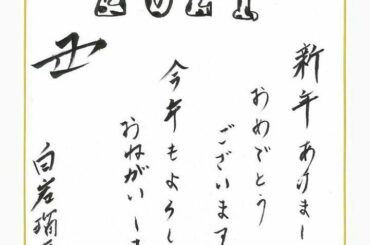 2021
新年あけまし
おめでとう
ございます
今年もよろし
おねがいしま
丑
白岩瑠